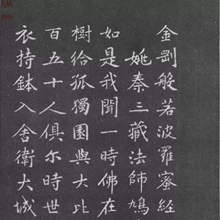 金剛般若波羅蜜經
姚秦三藏法師鳩
如是我聞一時佛在
樹給孤獨園與大比
百五十人俱尔時世
衣持鉢入舍衛大城